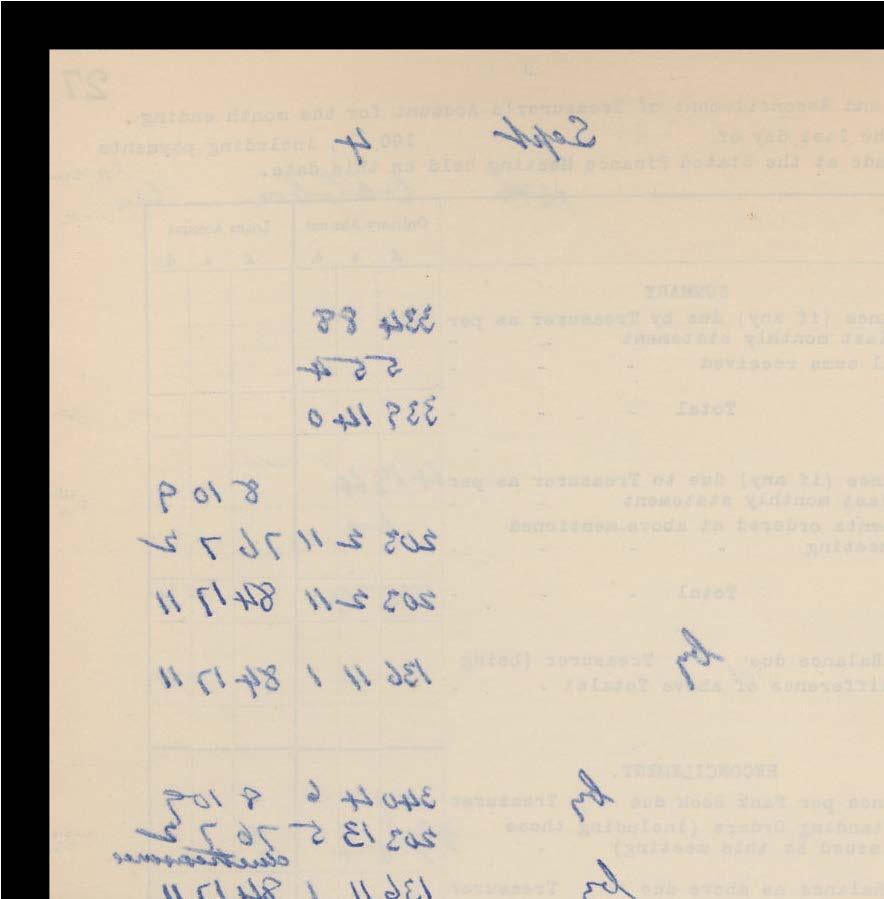 27
and Reconcilement of Treasurer's Account for the month ending
he last day of Sept 190 4, including payments
ade at the Stated Finance Meeting held on this date.
Ordinary Account Loans Account
£ s d £ s d
SUMMARY
nce (if any) due by Treasurer as per 334 8 8
last monthly statement
l sums received 5 5 4
Total 339 14 0
nce (if any) due to Treasurer as per 8 10 9
last monthly statement
ents ordered at above-mentioned 203 2 11 76 7 2
meeting
Total 203 2 11 84 17 11
Balance due by Treasurer (being 136 11 1 84 17 11
difference of above Totals)
RECONCILEMENT.
nce per Bank Book due by Treasurer 340 4 6 8 10 9
tanding Orders (including those 203 13 5 76 7 2
issued at this meeting) due treasurer
Balance as above due by Treasurer 136 11 1 84 17 11